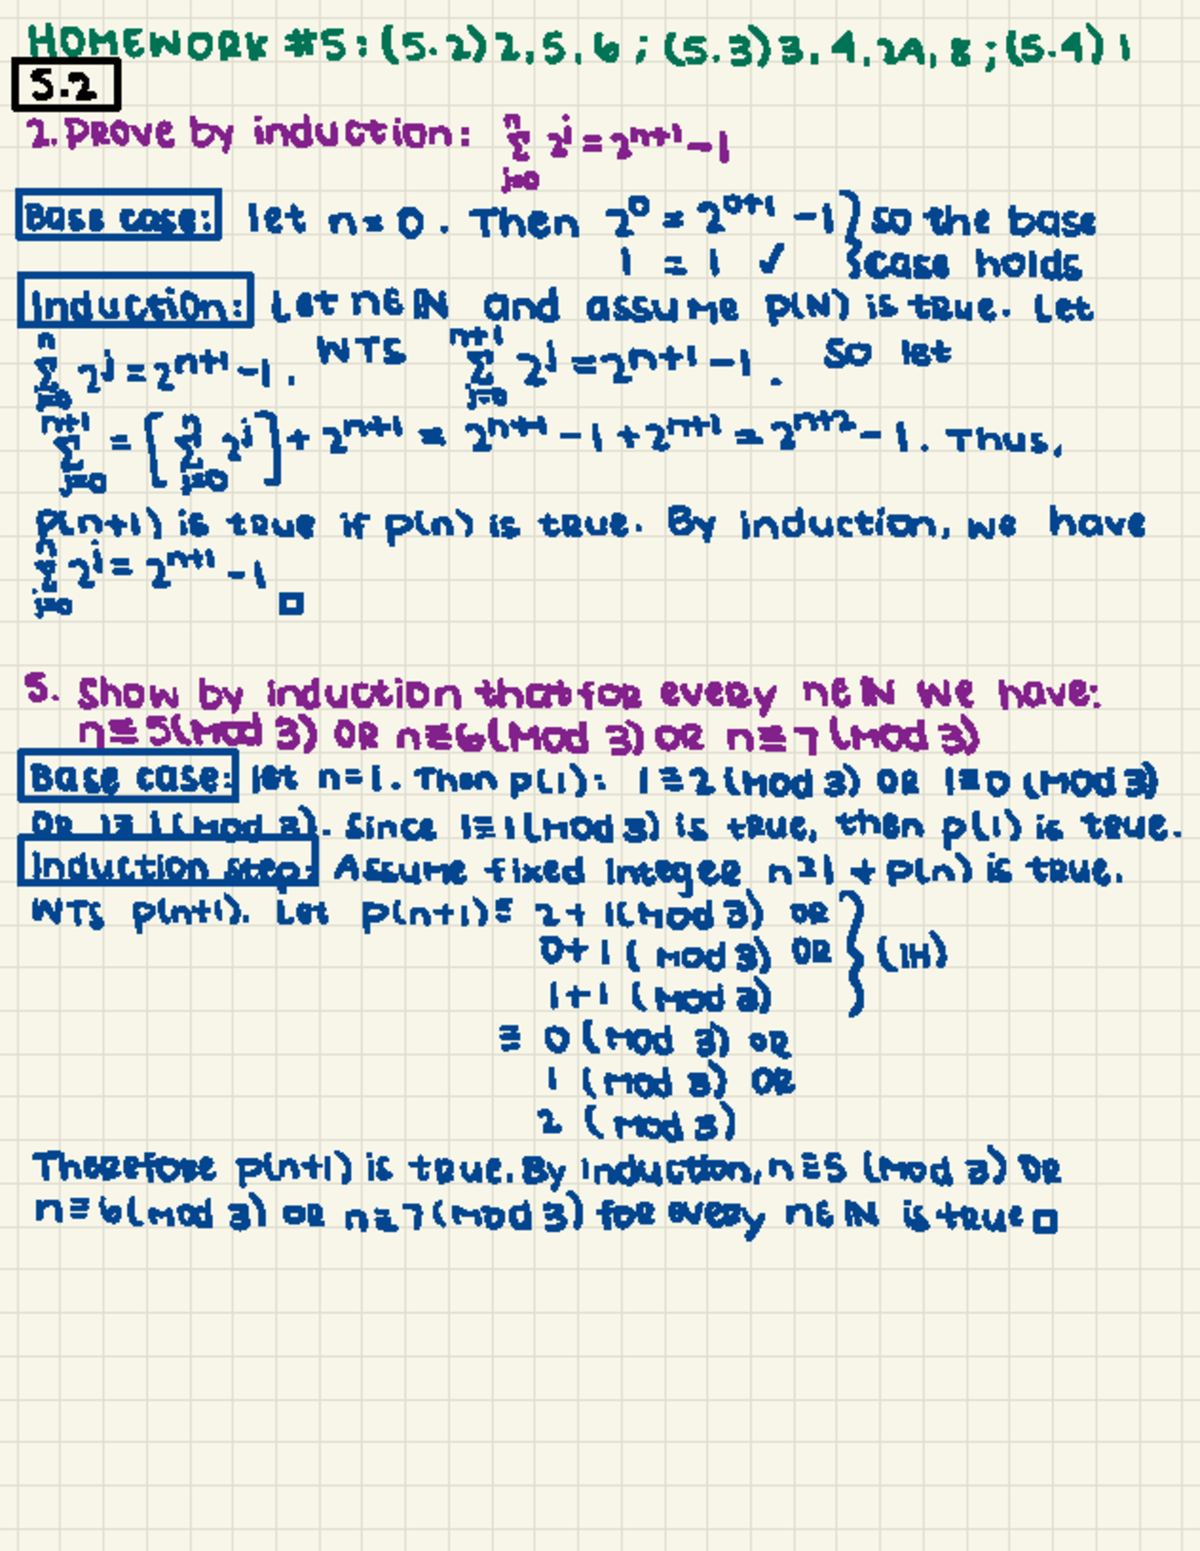 HOMEWORK #5: (5.2) 2, 5, 6; (5.3) 3, 4, 2A, 8; (5.4) 1
5.2
2. Prove by induction: ∑_{j=0}^{n} 2^j = 2^{n+1} - 1
Base case: let n = 0. Then 2^0 = 2^{0+1} - 1 } so the base
1 = 1 ✓ } case holds
Induction: Let n∈ℕ and assume p(N) is true. Let
∑_{j=0}^{n} 2^j = 2^{n+1} - 1. WTS ∑_{j=0}^{n+1} 2^j = 2^{n+1} - 1. So let
∑_{j=0}^{n+1} = [∑_{j=0}^{n} 2^j] + 2^{n+1} = 2^{n+1} - 1 + 2^{n+1} = 2^{n+2} - 1. Thus,
p(n+1) is true if p(n) is true. By induction, we have
∑_{j=0}^{n} 2^j = 2^{n+1} - 1 □
5. Show by induction that for every n∈ℕ we have:
n≡5(mod 3) OR n≡6(mod 3) OR n≡7(mod 3)
Base case: let n=1. Then p(1): 1≡2(mod 3) OR 1≡0(mod 3)
OR 1≡1(mod 3). Since 1≡1(mod 3) is true, then p(1) is true.
Induction step: Assume fixed integer n≥1 + p(n) is true.
WTS p(n+1). Let p(n+1)≡ 2+1(mod 3) OR
0+1(mod 3) OR } (IH)
1+1(mod 3)
≡ 0(mod 3) OR
1(mod 3) OR
2(mod 3)
Therefore p(n+1) is true. By induction, n≡5(mod 3) OR
n≡6(mod 3) OR n≡7(mod 3) for every n∈ℕ is true □